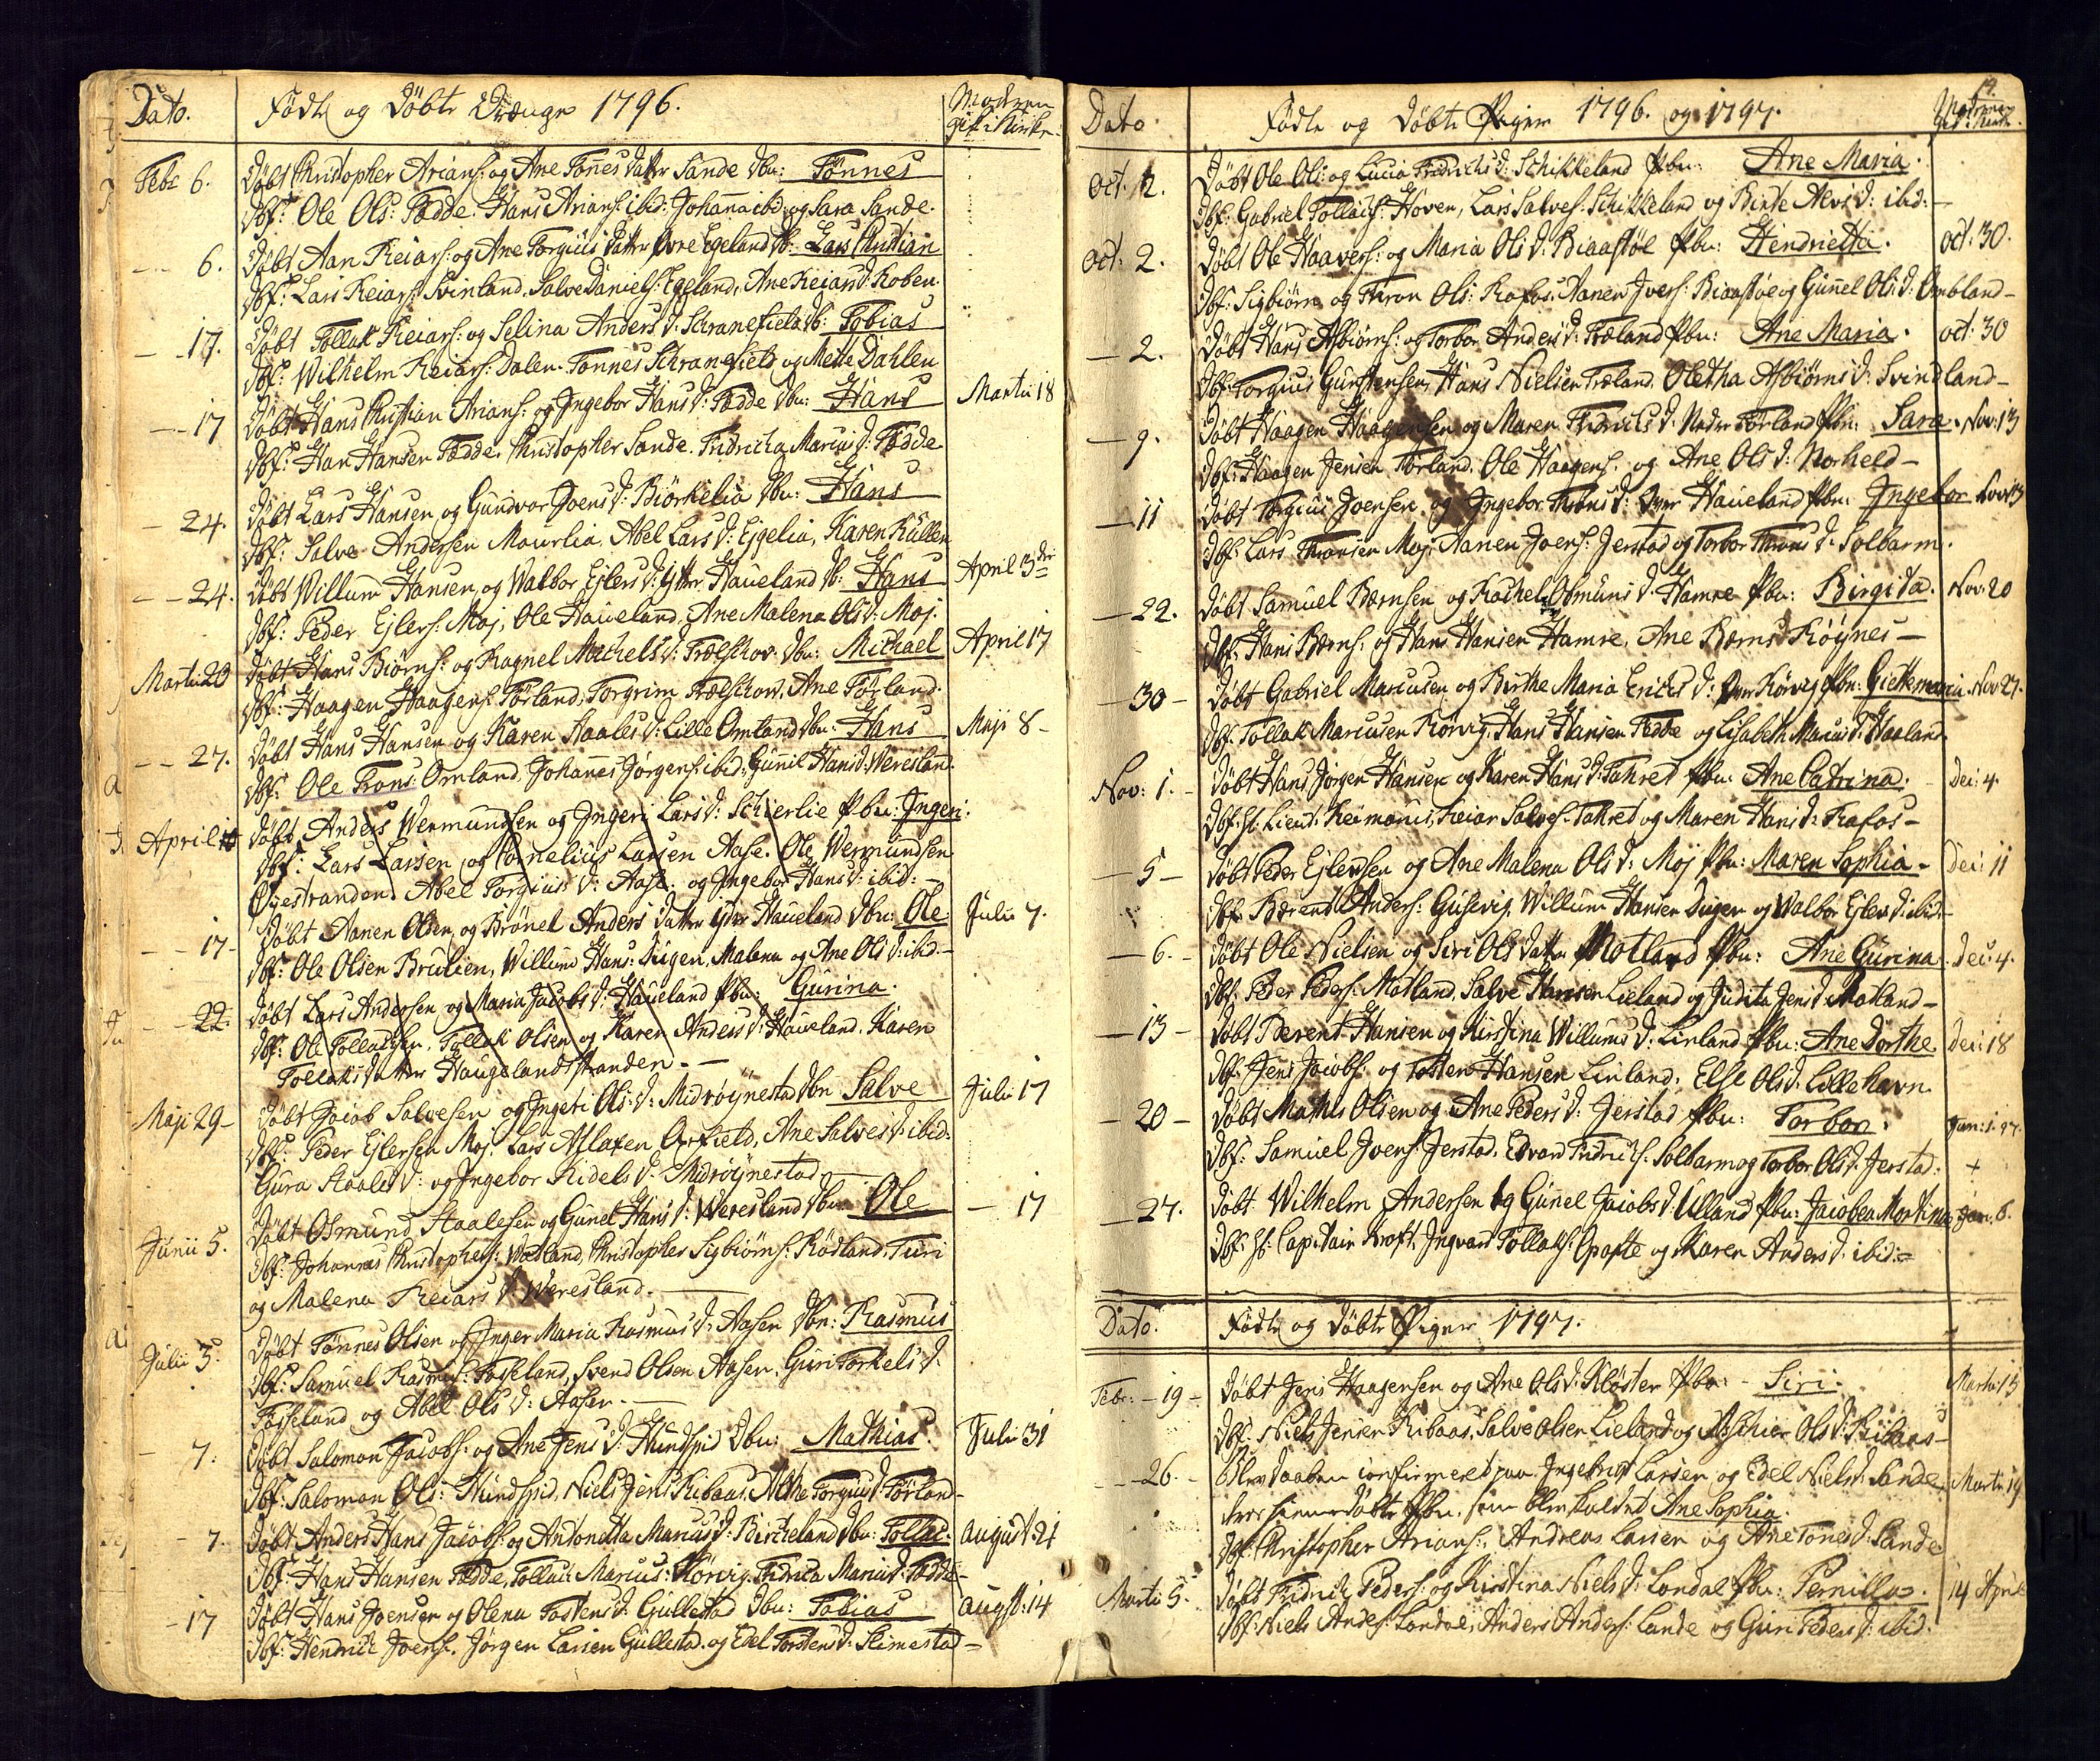 Dato.
Fødte og Døbte Drænge 1796.
Modren
gik i Kirke.
Febr 6.
Døbt Christopher Arians: og Ane Tønnes Datter Sande Dbn: Tønnes
Dbf: Ole Ols: Fædde. Hans Arians: ibid: Johanna ibd: og Sara Sande.
— 6.
Døbt Aan Reiars: og Ane Torgiüs Datter Øvre Egeland Db: Lars Christian
Dbf: Lars Reiars: Svinland. Salve Daniels: Egeland, Ane Reiars D: Roben.
— 17.
Døbt Tollak Reiars: og Selina Anders D: Schranefield Db: Tobias
Dbf: Wilhelm Reiars: Dalen. Tønnes Schranefield og Mette Dahlen
— 17
Døbt Hans Christian Arians: og Ingebor Hans D: Fædde Dbn: Hans
Martii 18
Dbf: Han Hansen Fædde. Christopher Sande. Fridricha Marcus D: Fædde
— 24.
Døbt Lars Hansen og Gundvor Joens D: Biörkelia Dbn: Hans
Dbf: Salve Andersen Maurlia. Abel Lars D: Egelia, Karen Küllen
— 24.
Døbt Willum Hansen og Walbor Ejlers D: Ytter Haueland Db: Hans
April 3die
Dbf: Peder Ejlers: Moj, Ole Haueland, Ane Malena Ols D: Moj.
Martii 20
Døbt Hans Biörns: og Ragnel Michels D: Trælschov. Dbn: Michael
April 17
Dbf: Haagen Haagens: Förland, Torgrim Trælschow. Ane Förland.
— 27.
Døbt Hans Hansen og Karen Staales D: Lille Omland Dbn: Hans
Maji 8 -
Dbf: Ole Trons: Omland. Johannes Jörgens: ibid: Gunnil Hans D: Veresland.
April
Døbt Anders Wermundsen og Ingeri Lars D: Schierlie Pbn: Ingeri.
Dbf: Lars Larsen og Cornelius Larsen Aase. Ole Wermundsen
Øyestranden. Abel Torgiuss D: Aase. og Ingebor Hans D: ibid: -
— 17 -
Døbt Aanen Olsen og Brönel Anders Datter Haueland Dbn: Ole
Julii 7.
Dbf: Ole Olsen Brulien, Willum Hans: Dugen. Malena og Ane Ols D: ibid: -
— 22.
Døbt Lars Andersen og Maria Jacobs D: Haueland Pbn: Gurina.
Dbf: Ole Tollacksen. Tollak Olsen og Karen Anders D: Haueland. Karen
Tollaks Datter Haugelandstranden. -
Maji 29 -
Døbt Jacob Salvesen og Ingeri Ols: D: Midröynestad Dbn Salve
Julii 17
Dbf: Peder Ejlersen Moj. Lars Atlaxen Qvifield, Ane Salves D: ibid:
Gura Staales D: og Ingebor Kidels D: Midröynestad
Junii 5.
Døbt Osmund Staalesen og Gunel Hans D: Weresland Dbn Ole
— 17
Dbf: Johannes Christophers: Vatland, Christopher Sigbiörns: Rödland. Turi
og Malena Reiars D: Weresland. -
Julii 3.
Døbt Tönnes Olsen og Inger Maria Rasmus D: Aasen Dbn: Rasmus
Dbf: Samuel Rasmus: Fosseland, Svend Olsen Aasen. Guri Torkels D:
Fosseland og Abel Ols D: Aasen. -
— 7.
Døbt Salomon Jacobs: og Ane Jens D: Hundspid Dbn: Mathias.
Julii 31
Dbf: Salomon Ols: Hundspid, Niels Jens: Ribaas. Athe Torgius D: Förland -
— 7.
Døbt Anders Hans Jacobs: og Andonetta Marcus D: Bircheland Dbn: Tollac.
August: 21
Dbf: Hans Hansen Fædde, Tollac: Marcus: Rörvig. Fridrica Marius D: Fædde -
— 17
Døbt Hans Joensen og Olena Tostens D: Gullestad Dbn: Tobias
Augst: 14
Dbf: Hendrich Joens:. Jörgen Larsen Gullestad. og Edel Torstens D: Slimestad -
14.
Dato.
Fødte og Døbte Piger 1796. og 1797.
Modrene
gik i Kirke.
Oct. 2.
Døbt Ole Ols: og Lucia Fredrichs D: Schikkeland Pbn: Ane Maria.
Dbf: Gabriel Tollacs: Hoven, Lars Salves: Schikkeland og Birte Alevs D: ibid: -
Oct: 2.
Døbt Ole Haavers: og Maria Ols D: Biaastöl Pbn: Hendrietta.
Oct: 30.
Dbf: Sigbiörn og Thron Ols: Rafos. Aanen Ivers: Biaastöl og Gunnel Ols D: Ombland -
— 2.
Døbt Hans Asbiörns: og Torbor Anders D: Træland Pbn: Ane Maria.
oct: 30
Dbf: Torgius Gunstensen, Hans Nielsen Træland. Oletha Asbiörns D: Svindland -
— 9.
Døbt Haagen Haagensen og Maren Fredrichs D: Nedre Förland Pbn: Sara.
Nov: 13
Dbf: Haagen Jensen Förland. Ole Haagens: og Ane Ols D: Norheld -
— 11
Døbt Torgius Joensen og Ingebor Throns D: Haueland Pbn: Ingebor
Nov 13
Dbf: Lars Thronsen Moj. Aanen Joens: Jerstad og Torbor Throns D: Solbarm.
— 22.
Døbt Samuel Bærnsen og Rachel Osmunds D: Hamre Pbn: Birgita.
Nov: 20
Dbf: Hans Bærns: og Hans Hansen Hamre, Ane Bærns: Röynes -
— 30 -
Døbt Gabriel Marcusen og Birthe Maria Erichs D: Rörvig Pbn: Giettemaria
Nov 27.
Dbf: Tollak Marcusen Rörvig. Hans Hansen Fædde og Lisabeth Marcus D: Haaland.
Nov: 1. -
Døbt Hans Jörgen Hansen og Karen Hans D: Tahret Pbn: Ane Catrina.
Dec: 4.
Dbf: Hr: Lieut: Reimanns, Reiar Salves: Tahret og Maren Hans D: Rafos -
— 5 -
Døbt Peder Ejlersen og Ane Malena Ols D: Moj Pbn: Maren Sophia -
Dec: 11
Dbf: Bærent Anders: Gusevig. Willum Hansen Duger og Walbor Ejlers D: ibid: -
— 6. -
Døbt Ole Nielsen og Siri Ols Datter Motland Pbn: Ane Gurina.
Dec: 4.
Dbf: Peder Peders: Motland. Salve Hansen Lieland og Judita Jens D: Motland -
— 13 -
Døbt Berent Hansen og Kirstina Willums D: Linland Pbn: Ane Dorthe.
Dec: 18
Dbf: Jens Jacobs: og Tosten Hansen Linland. Else Ols D: Lillehavn.
— 20 -
Døbt Mathis Olsen og Ane Peders D: Jerstad Pbn: Torbor.
Jan: 1. 97.
Dbf: Samuel Joens: Jerstad. Edvard Fridrichs: Solbarm og Torbor Ols D: Jerstad. +
— 27.
Døbt Wilhelm Andersen og Gunel Jacobs D: Ulland Pbn: Jacobea Mortina
Jan. 6.
Dbf: Hr: Capitain Kroft, Ingvar Tollaks: Opofte og Karen Anders D: ibid: =
Dato.
Fødte og Døbte Piger 1797.
Febr: - 19 -
Døbt Jens Haagensen og Ane Ols D: Klöster Pbn: - Siri.
Martii 13
Dbf: Niels Jensen Ribaas, Salve Olsen Lieland og Aschier Ols D: Ribaas -
— 26. -
Blev Daaben confirmeret paa Ingebrigt Larsen og Edel Niels D: Sande
Martii 19
hiemmedöbte Pbn. som blev kaldet Ane Sophia.
Dbf: Christopher Arians:, Andreas Larsen og Ane Tönes D: Sande
Martii 5.
Døbt Fridrich Peders: og Kirstina Niels D: Londal Pbn: Pernilla.
14 April
Dbf: Niels Anders: Londal, Anders Anders: Lande og Guri Peders D: ibid.